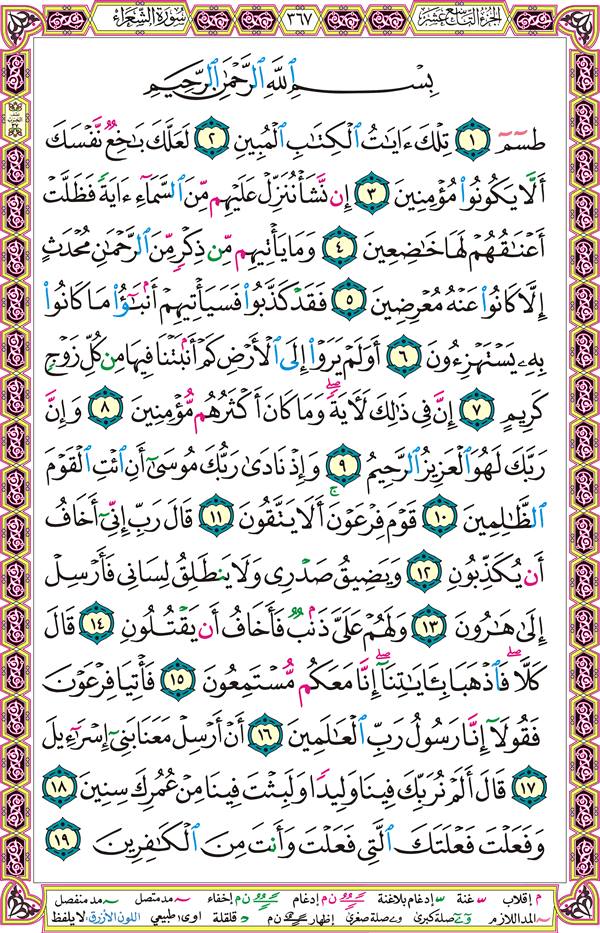 الجزء التاسع عشر ٣٦٧ سورة الشعراء
بِسْمِ اللَّهِ الرَّحْمَٰنِ الرَّحِيمِ
طسٓمٓ ١ تِلْكَ ءَايَاتُ الْكِتَابِ الْمُبِينِ ٢ لَعَلَّكَ بَاخِعٌ نَّفْسَكَ
أَلَّا يَكُونُوا مُؤْمِنِينَ ٣ إِن نَّشَأْ نُنَزِّلْ عَلَيْهِم مِّنَ السَّمَآءِ ءَايَةً فَظَلَّتْ
أَعْنَاقُهُمْ لَهَا خَاضِعِينَ ٤ وَمَا يَأْتِيهِم مِّن ذِكْرٍ مِّنَ الرَّحْمَٰنِ مُحْدَثٍ
إِلَّا كَانُوا عَنْهُ مُعْرِضِينَ ٥ فَقَدْ كَذَّبُوا فَسَيَأْتِيهِمْ أَنۢبَٰٓؤُا مَا كَانُوا
بِهِۦ يَسْتَهْزِءُونَ ٦ أَوَلَمْ يَرَوْا إِلَى الْأَرْضِ كَمْ أَنۢبَتْنَا فِيهَا مِن كُلِّ زَوْجٍ
كَرِيمٍ ٧ إِنَّ فِي ذَٰلِكَ لَءَايَةً ۖ وَمَا كَانَ أَكْثَرُهُم مُّؤْمِنِينَ ٨ وَإِنَّ
رَبَّكَ لَهُوَ الْعَزِيزُ الرَّحِيمُ ٩ وَإِذْ نَادَىٰ رَبُّكَ مُوسَىٰٓ أَنِ ائْتِ الْقَوْمَ
الظَّالِمِينَ ١٠ قَوْمَ فِرْعَوْنَ ۚ أَلَا يَتَّقُونَ ١١ قَالَ رَبِّ إِنِّىٓ أَخَافُ
أَن يُكَذِّبُونِ ١٢ وَيَضِيقُ صَدْرِى وَلَا يَنطَلِقُ لِسَانِى فَأَرْسِلْ
إِلَىٰ هَارُونَ ١٣ وَلَهُمْ عَلَىَّ ذَنۢبٌ فَأَخَافُ أَن يَقْتُلُونِ ١٤ قَالَ
كَلَّا ۖ فَاذْهَبَا بِـَٔايَاتِنَآ ۖ إِنَّا مَعَكُم مُّسْتَمِعُونَ ١٥ فَأْتِيَا فِرْعَوْنَ
فَقُولَآ إِنَّا رَسُولُ رَبِّ الْعَالَمِينَ ١٦ أَنْ أَرْسِلْ مَعَنَا بَنِىٓ إِسْرَٰٓءِيلَ
١٧ قَالَ أَلَمْ نُرَبِّكَ فِينَا وَلِيدًا وَلَبِثْتَ فِينَا مِنْ عُمُرِكَ سِنِينَ ١٨
وَفَعَلْتَ فَعْلَتَكَ الَّتِى فَعَلْتَ وَأَنتَ مِنَ الْكَافِرِينَ ١٩
م إقلاب غنة إدغام بلاغنة ن م إدغام ن م إخفاء مد متصل مد منفصل
المد اللازم صلة كبرى صلة صغرى إظهار ن م قلقلة اوى طبيعي اللون الأزرق لا يلفظ